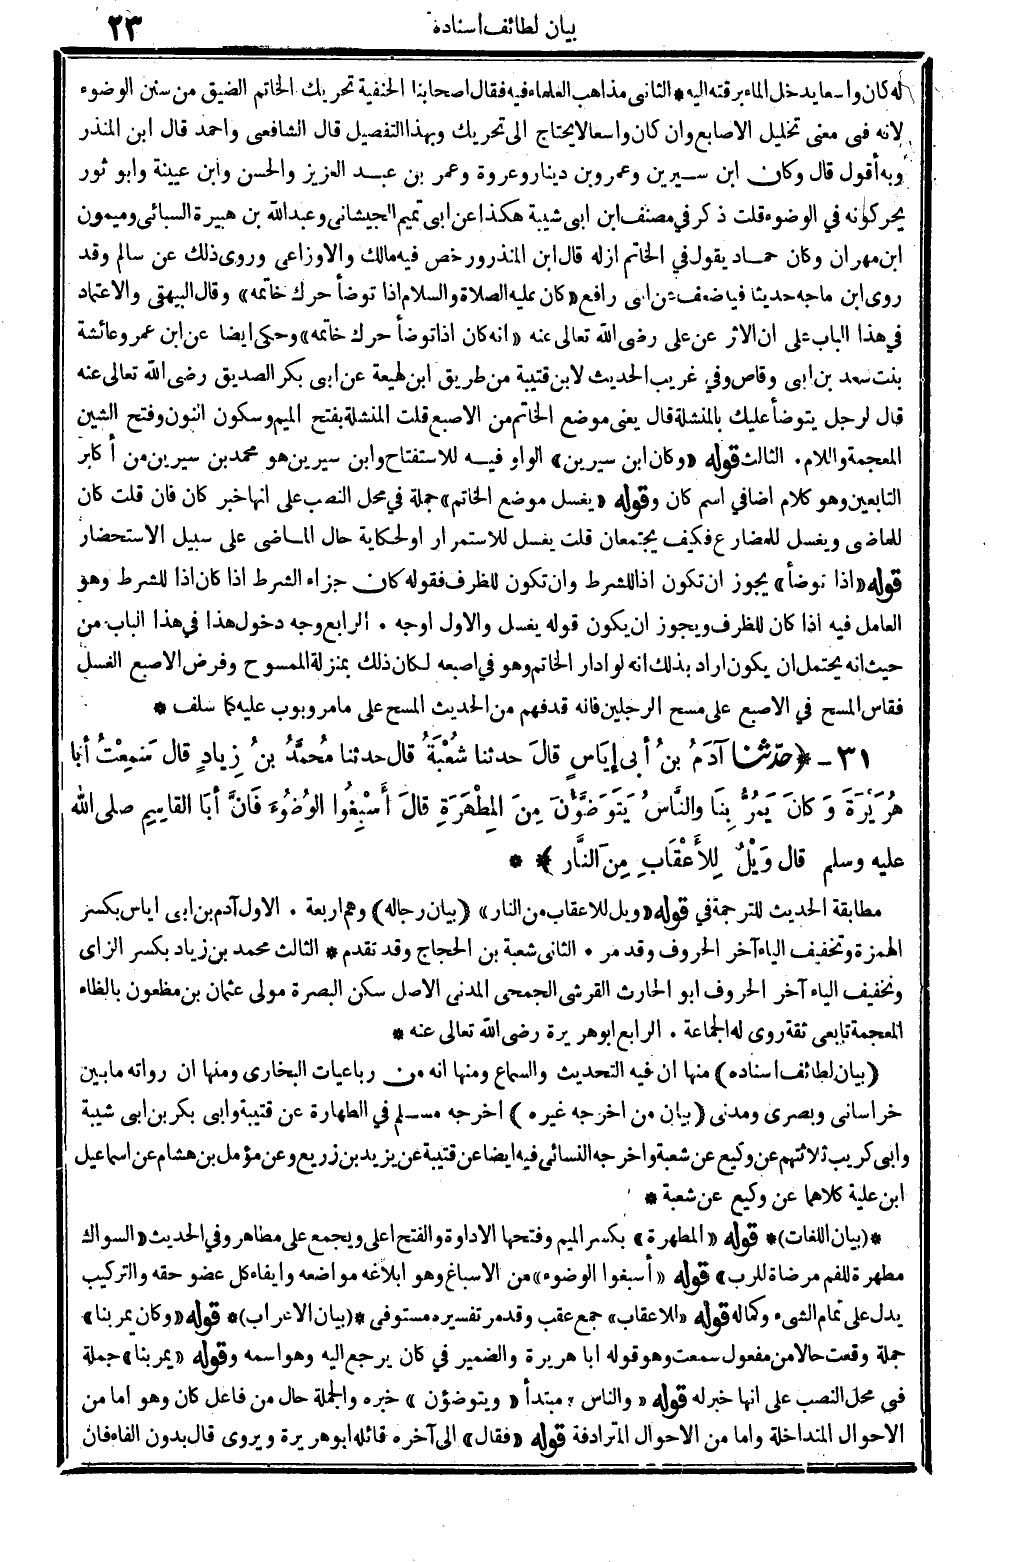 بيان لطائف أسناده
٢٣
له كان واسعا يدخل الماء برقته اليه * الثاني مذاهب العلماء فيه فقال اصحابنا الحنفية تحريك الخاتم الضيق من سنن الوضوء
لانه في معنى تخليل الاصابع وان كان واسعا لا يحتاج الى تحريك وبهذا التفصيل قال الشافعي واحمد قال ابن المنذر
وبه أقول قال وكان ابن سيرين وعمرو بن دينار وعروة وعمر بن عبد العزيز والحسن وابن عيينة وابو ثور
يحركونه في الوضوء قلت ذكر في مصنف ابن ابى شيبة هكذا عن ابى تميم الجيشانى وعبد الله بن هبيرة السبائى وميمون
ابن مهران وكان حماد يقول في الخاتم ازله قال ابن المنذر ورخص فيه مالك والاوزاعى وروى ذلك عن سالم وقد
روى ابن ماجه حديثا فيه ضعف عن ابى رافع «كان عليه الصلاة والسلام اذا توضأ حرك خاتمه» وقال البيهقى والاعتماد
في هذا الباب على ان الاثر عن على رضى الله تعالى عنه «انه كان اذا توضأ حرك خاتمه» وحكى ايضا عن ابن عمر وعائشة
بنت سعد بن ابى وقاص وفي غريب الحديث لابن قتيبة من طريق ابن لهيعة عن ابى بكر الصديق رضى الله تعالى عنه
قال لرجل يتوضأ عليك بالمنشلة قال يعنى موضع الخاتم من الاصبع قلت المنشلة بفتح الميم وسكون النون وفتح الشين
المعجمة واللام . الثالث قوله «وكان ابن سيرين» الواو فيه للاستفتاح وابن سيرين هو محمد بن سيرين من أكابر
التابعين وهو كلام اضافي اسم كان وقوله «يغسل موضع الخاتم» جملة في محل النصب على انها خبر كان فان قلت كان
للماضى ويغسل للمضارع فكيف يجتمعان قلت يغسل للاستمرار او لحكاية حال الماضى على سبيل الاستحضار
قوله «اذا توضأ» يجوز ان تكون اذا للشرط وان تكون للظرف فقوله كان جزاء الشرط اذا كان اذا للشرط وهو
العامل فيه اذا كان للظرف ويجوز ان يكون قوله يغسل والاول اوجه . الرابع وجه دخول هذا في هذا الباب من
حيث انه يحتمل ان يكون اراد بذلك انه لو ادار الخاتم وهو في اصبعه لكان ذلك بمنزلة الممسوح وفرض الاصبع الغسل
فقاس المسح في الاصبع على مسح الرجلين فانه قد فهم من الحديث المسح على ما مر وبوب عليه كما سلف *
٣١ - ﴿حدّثنا آدَمُ بنُ أبي إيَاسٍ قالَ حدثنا شُعْبَةُ قال حدثنا مُحَمَّدُ بنُ زِيادٍ قال سَمِعْتُ أبَا
هُرَيْرَةَ وَكانَ يَمُرُّ بِنَا والنَّاسُ يَتَوَضَّؤُنَ مِنَ المِطْهَرَةِ قالَ أَسْبِغُوا الوُضُوءَ فَانَّ أبَا القاسِمِ صلى الله
عليه وسلم قال وَيْلٌ لِلأَعْقَابِ مِنَ النَّارِ﴾ *
مطابقة الحديث للترجمة في قوله «ويل للاعقاب من النار» (بيان رجاله) وهم اربعة . الاول آدم بن ابى اياس بكسر
الهمزة وتخفيف الياء آخر الحروف وقد مر . الثانى شعبة بن الحجاج وقد تقدم * الثالث محمد بن زياد بكسر الزاى
وتخفيف الياء آخر الحروف ابو الحارث القرشى الجمحى المدنى الاصل سكن البصرة مولى عثمان بن مظعون بالظاء
المعجمة تابعى ثقة روى له الجماعة . الرابع ابو هريرة رضى الله تعالى عنه *
(بيان لطائف اسناده) منها ان فيه التحديث والسماع ومنها انه من رباعيات البخارى ومنها ان رواته ما بين
خراسانى وبصرى ومدنى (بيان من اخرجه غيره) اخرجه مسلم في الطهارة عن قتيبة وابى بكر بن ابى شيبة
وابى كريب ثلاثتهم عن وكيع عن شعبة واخرجه النسائى فيه ايضا عن قتيبة عن يزيد بن زريع وعن مؤمل بن هشام عن اسماعيل
ابن علية كلاهما عن وكيع عن شعبة *
*(بيان اللغات)* قوله «المطهرة» بكسر الميم وفتحها الاداوة والفتح اعلى ويجمع على مطاهر وفي الحديث «السواك
مطهرة للفم مرضاة للرب» قوله «أسبغوا الوضوء» من الاسباغ وهو ابلاغه مواضعه وايفاء كل عضو حقه والتركيب
يدل على تمام الشىء وكماله قوله «للاعقاب» جمع عقب وقد مر تفسيره مستوفى *(بيان الاعراب)* قوله «وكان يمر بنا»
جملة وقعت حالا من مفعول سمعت وهو قوله ابا هريرة والضمير في كان يرجع اليه وهو اسمه وقوله «يمر بنا» جملة
في محل النصب على انها خبر له قوله «والناس» مبتدأ «ويتوضؤن» خبره والجملة حال من فاعل كان وهو اما من
الاحوال المتداخلة واما من الاحوال المترادفة قوله «فقال» الى آخره قائله ابو هريرة ويروى قال بدون الفاء فان